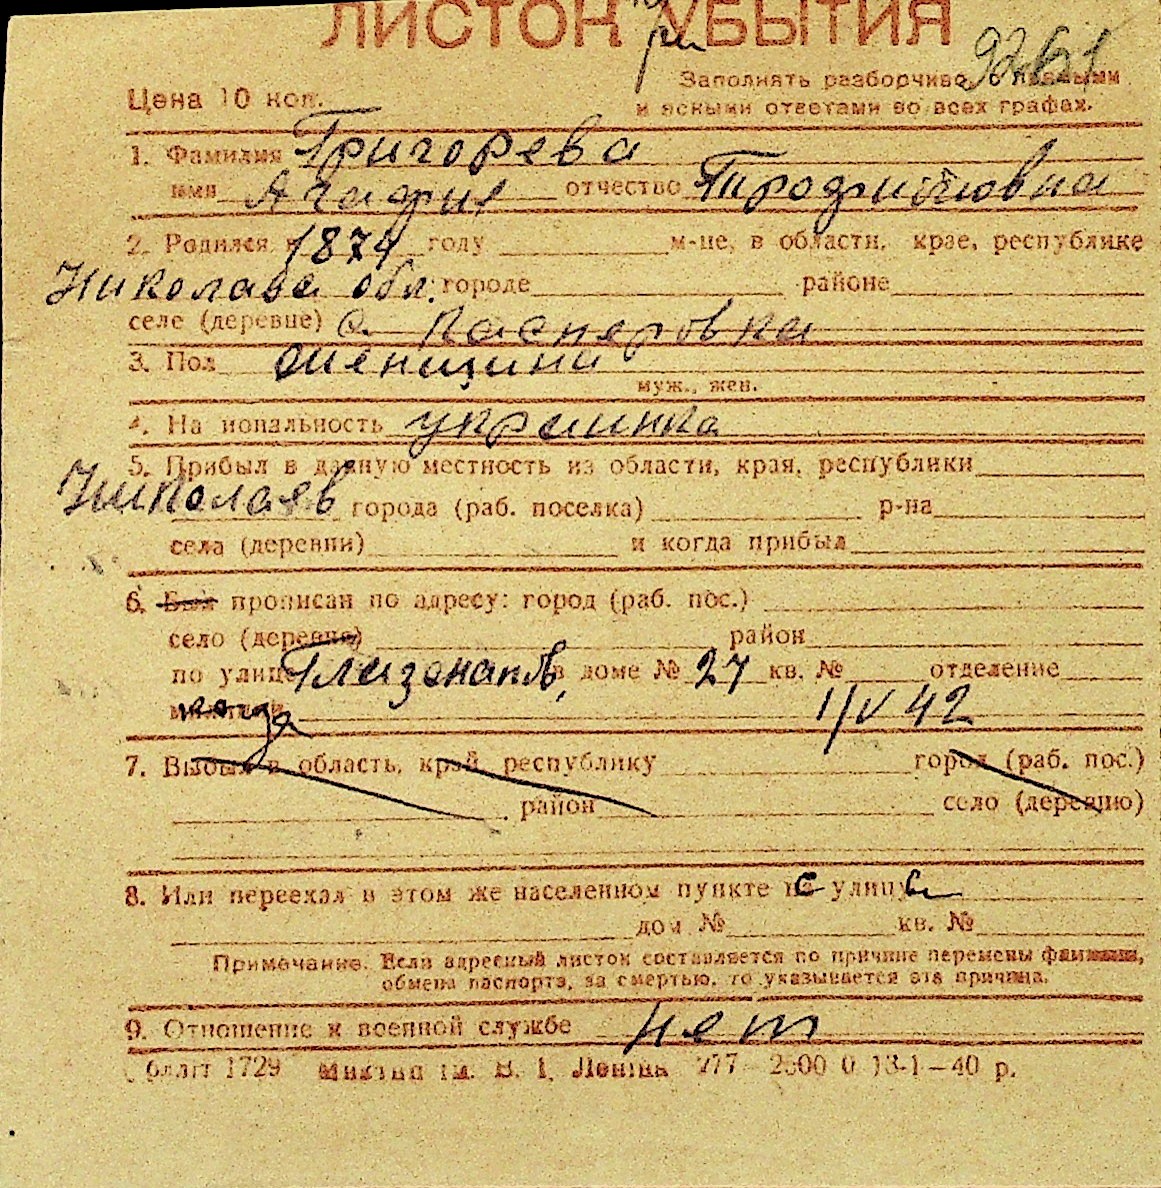 ЛИСТОК УБЫТИЯ
Заполнять разборчиво, с полными
Цена 10 коп.
и ясными ответами во всех графах.
1. Фамилия Григорева
имя Агафия отчество Трофимовна
2. Родился в 1874 году м-це, в области, крае, республике
Николава обл. городе районе
селе (деревне) с. Касперовка
3. Пол женщина
муж., жен.
4. Национальность украинка
5. Прибыл в данную местность из области, края, республики
Николаев города (раб. поселка) р-на
села (деревни) и когда прибыл
6. Был прописан по адресу: город (раб. пос.)
село (деревне) район
по улице в доме № 27 кв. № отделение
милиции 1/V 42
7. Выбыл в область, край, республику город (раб. пос.)
район село (деревню)
8. Или переехал в этом же населенном пункте на улицу
дом № кв. №
Примечание. Если адресный листок составляется по причине перемены фамилии,
обмена паспорта, за смертью, то указывается эта причина.
9. Отношение к военной службе нет
Обллiт 1729 iм. В. I. Ленiна 777 13-1—40 р.